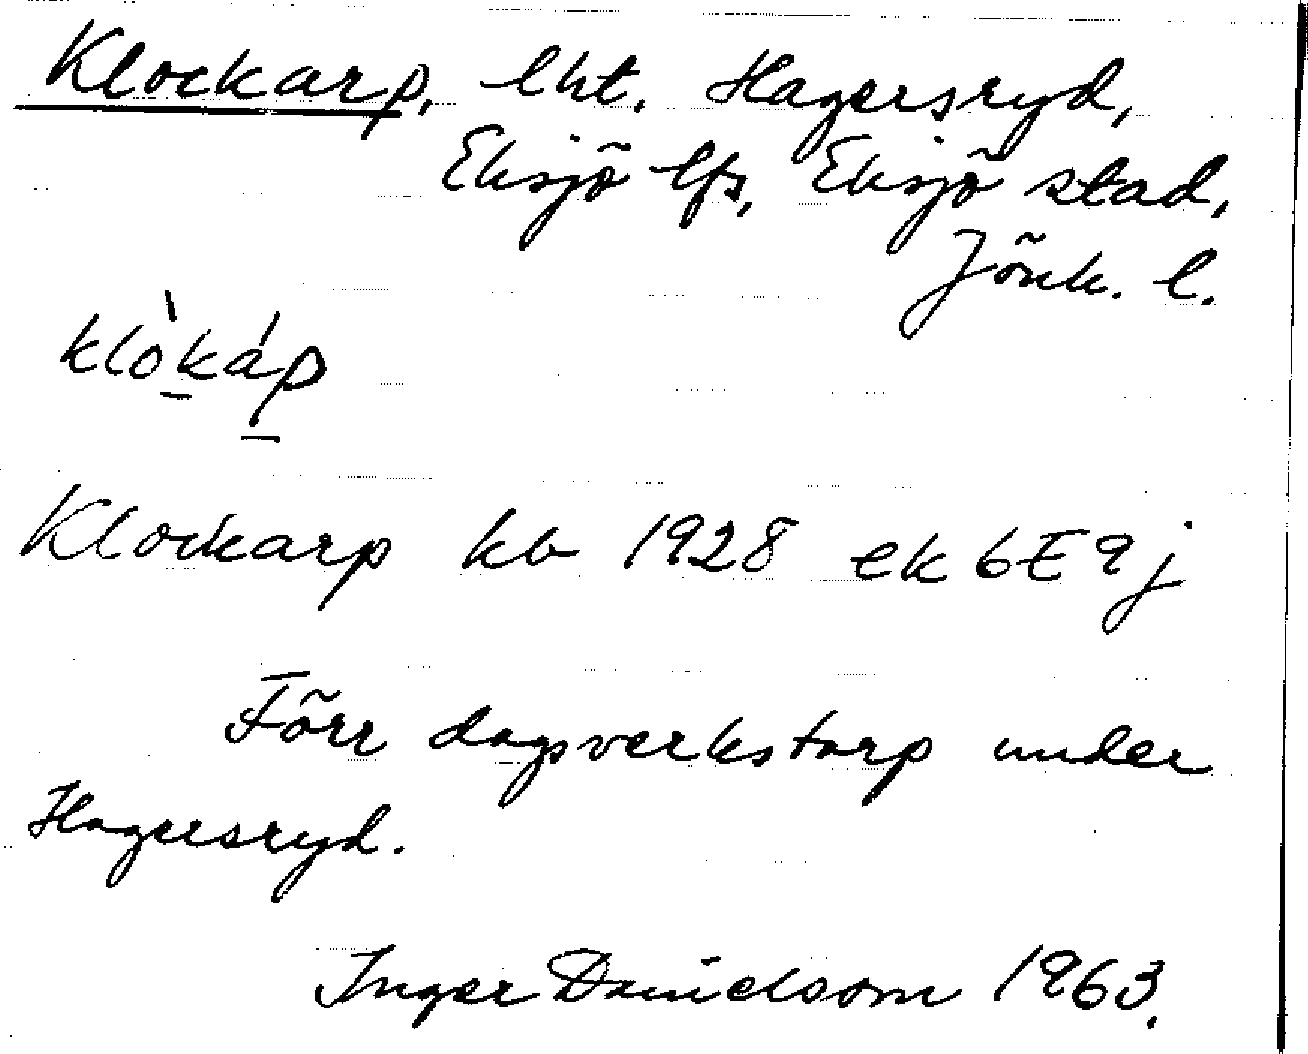 Klockarp, lht. Hagersryd,
Eksjö lfs, Eksjö stad,
Jönk. l.
klòkáp
Klockarp kb 1928 ek 6E9j
Förr dagsverkstorp under
Hagersryd.
Inger Danielsom 1963.